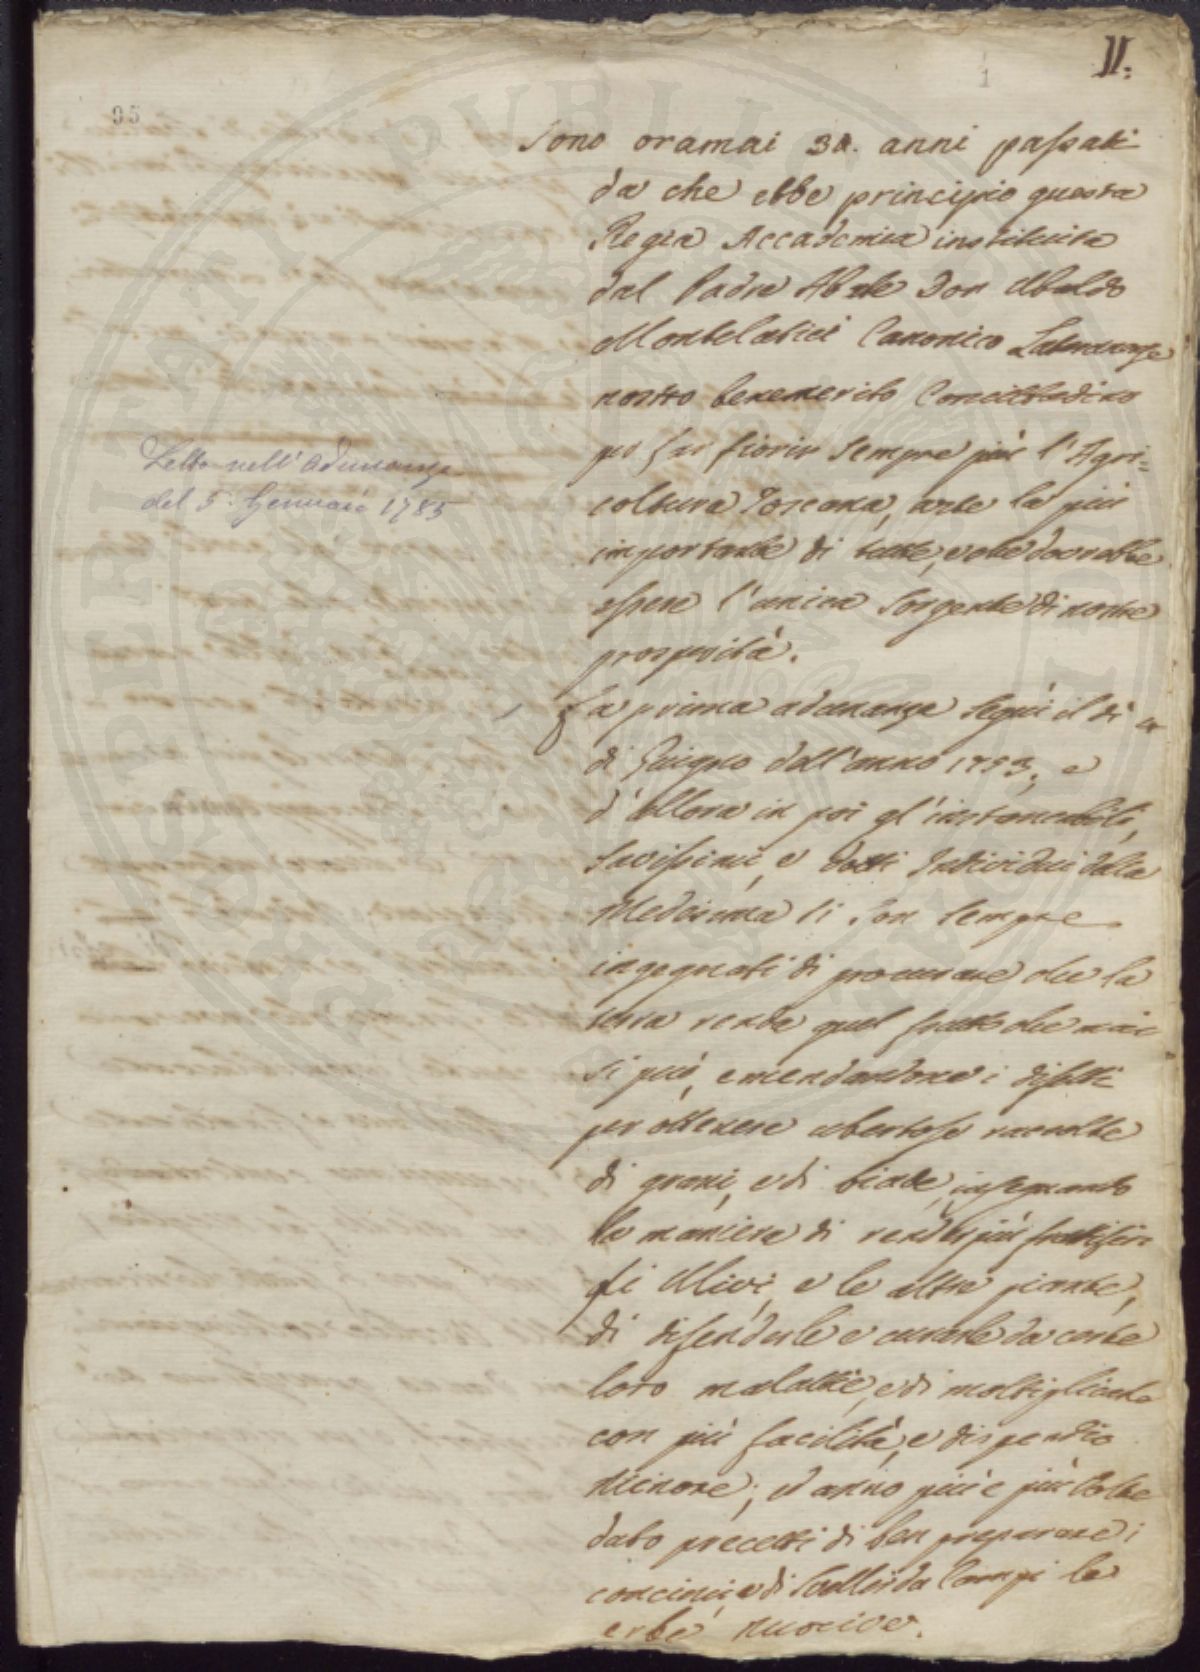 II.
1
95
Sono oramai 30. anni passati
da che ebbe principio questa
Regia Accademia instituita
dal Padre Abate Don Ubaldo
Montelatici Canonico Lateranse
nostro benemerito Concittadino
per far fiorir sempre più l'Agri=
coltura Toscana, arte la più
importante di tutte, e che dovrebbe
essere l'unica sorgente di nostre
prosperità.
Letto nell'Adunanza
del 5. Gennaio 1785
La prima adunanza seguì il dì 4
di Giugno dell'anno 1753, e
d'allora in poi gl'instancabili,
savissimi, e dotti Individui della
Medesima si son sempre
ingegnati di procurare che la
terra renda quel frutto che mai
si può, emendandone i difetti
per ottenere ubertose raccolte
di grani, e di biade, insegnando
la maniera di render più fruttiferi
gli Ulivi, e le altre piante,
di difenderle e curarle da certe
loro malattie, e di moltiplicarle
con più facilità, e dispendio
minore; ed anno più e più volte
dato precetti di ben preparare i
concimi e di svellei da Campi le
erbe nuocive.